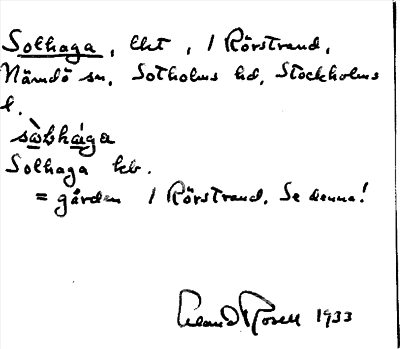 Solhaga, lht, 1 Rörstrand,
Nämdö sn, Sotholms hd, Stockholms
l.
Solhaga kb.
= gården 1 Rörstrand. Se denna!
1933